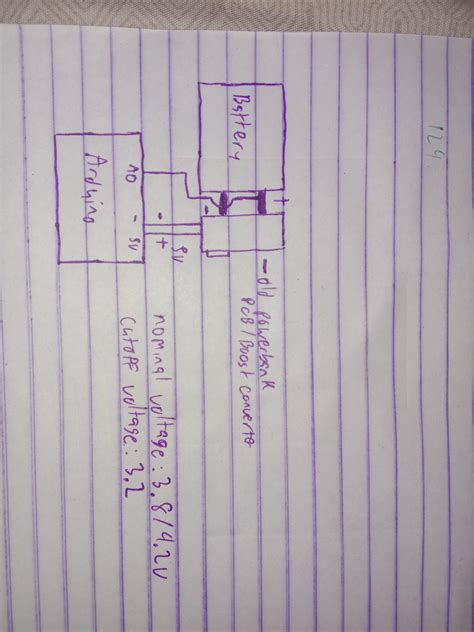 124
Battery
+
-
- old powerbank
PCB/Boost converter
5V
A0 - 5V
- +
Arduino
nominal voltage: 3.8/4.2V
cutoff voltage: 3.2